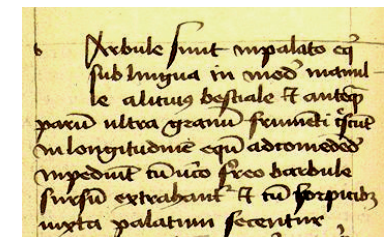 b Arbule sunt in palato eq̃
sub lingua in mod̃ mamil
le alicuius bestiale ⁊ anteq̃
parũ ultra granũ frumẽti
in longitudinẽ equũ ad comeded̃
inpediũt tũ uero barbule
sursũ extrahant᷑ ⁊ cũ forpicib3
iuxta palatum secentur